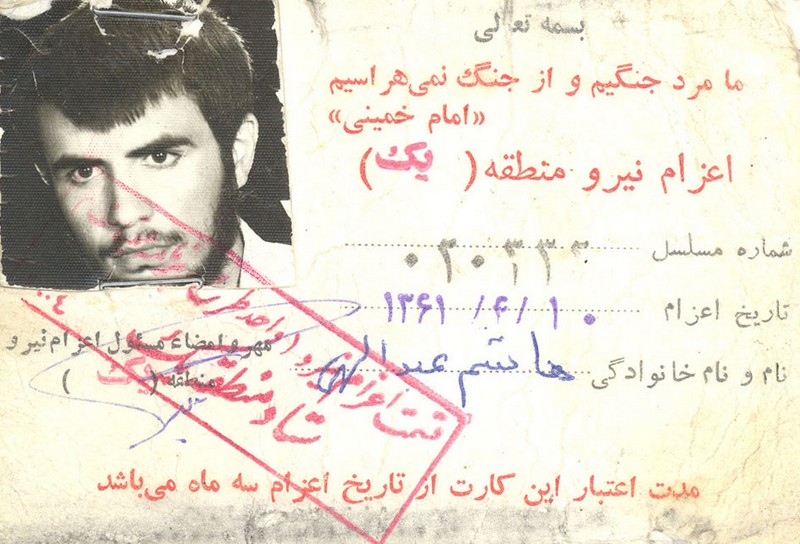 بسمه تعالی
ما مرد جنگیم و از جنگ نمی‌هراسیم
«امام خمینی»
اعزام نیرو منطقه (یک)
شماره مسلسل
تاریخ اعزام ۱۳۶۱/۴/۱۰
نام و نام خانوادگی هاشم عبدالهی
مهر و امضاء مسئول اعزام نیرو
منطقه (یک)
ستاد منطقه یک
مدت اعتبار این کارت از تاریخ اعزام سه ماه می‌باشد